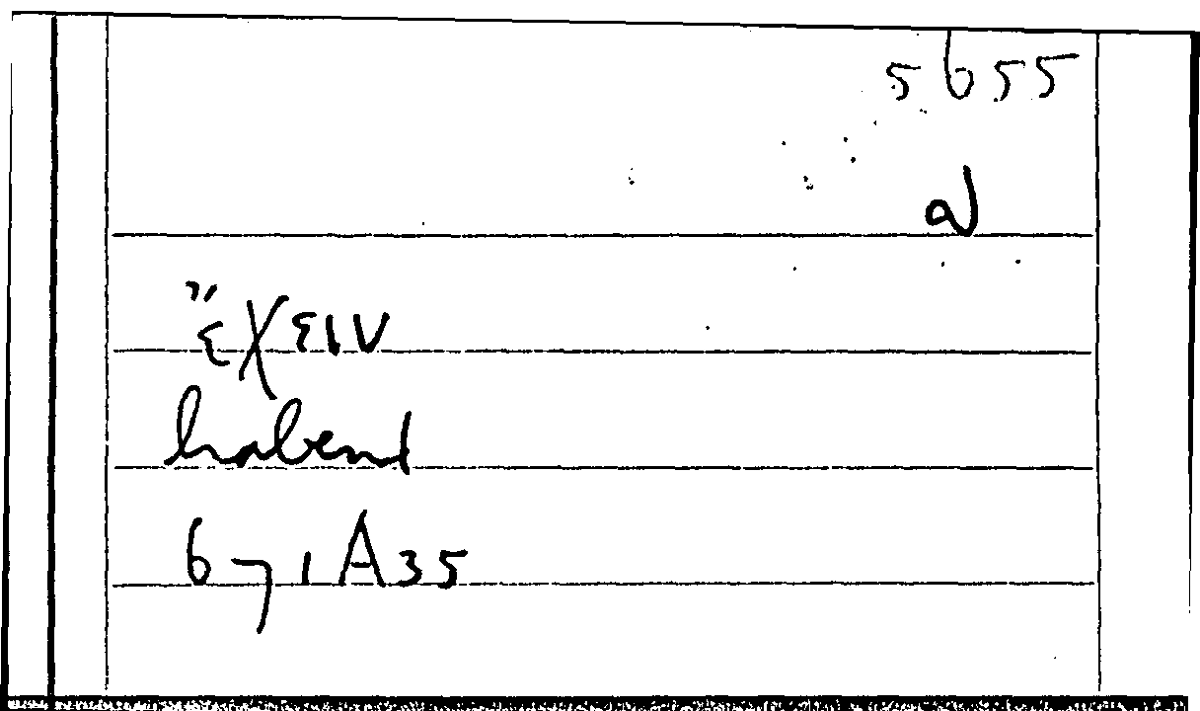 5655
ἔχειν
habent
671A35